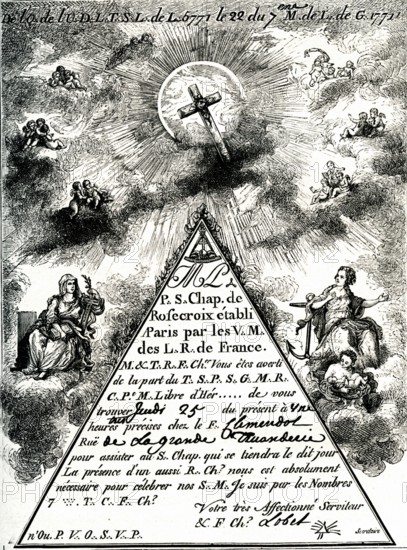 De l'O. de l'U. D. L. T. S. L. de L. 5771 le 22 du 7.me M. de L. de G. 1771
M L
P. S. Chap. de
Rosecroix établi
Paris par les V. M.
des L. R. de France.
M. & T. R. F. Ch.r Vous êtes averti
de la part du T. S. P. S. G. M. R.
C. P.e M. Libre d'Hér..... de vous
trouver Jeudi 25 du présent à une
heures précises chez le F.
Ruë de La grande
pour assister au S. Chap. qui se tiendra le dit jour
La présence d'un aussi R. Ch.r nous est absolument
nécessaire pour célébrer nos S. M. Je suis par les Nombres
7 T. C. F. Ch.r
Votre très Affectionné Serviteur
& F Ch.r Lobet
n'Ou. P. V. O. S. V. P.